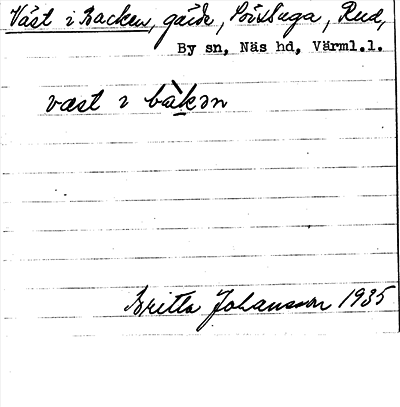 Väst i Backen, gärde, Rud,
By sn, Näs hd, Värml.l.
væst i bàkən
Britta Johansson 1935